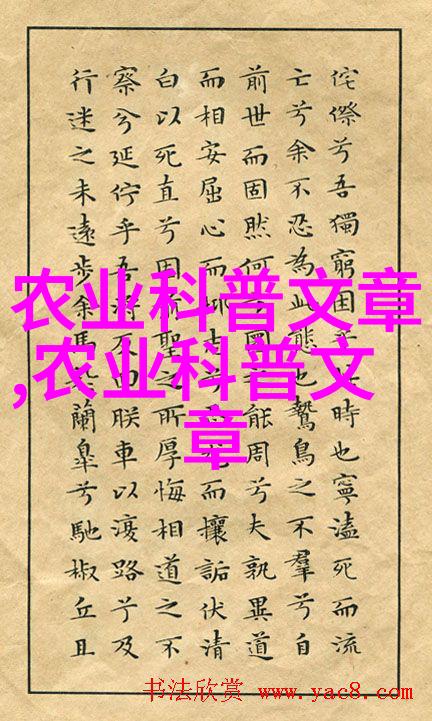 侘傺兮吾獨窮困時也寧溘死而流
亡兮余不忍為此態也鷙鳥之不羣兮自
前世而固然何能周兮夫孰異道
而相安屈心而抑志兮尤而攘詬伏清
白以死直兮固前聖之所厚悔相道之不
察兮延佇乎吾將反回朕車以復路兮及
行迷之未遠步余馬蘭臯兮馳椒丘且
农业科普文章
,农业科普文
章
书法欣赏 www.yac8.com